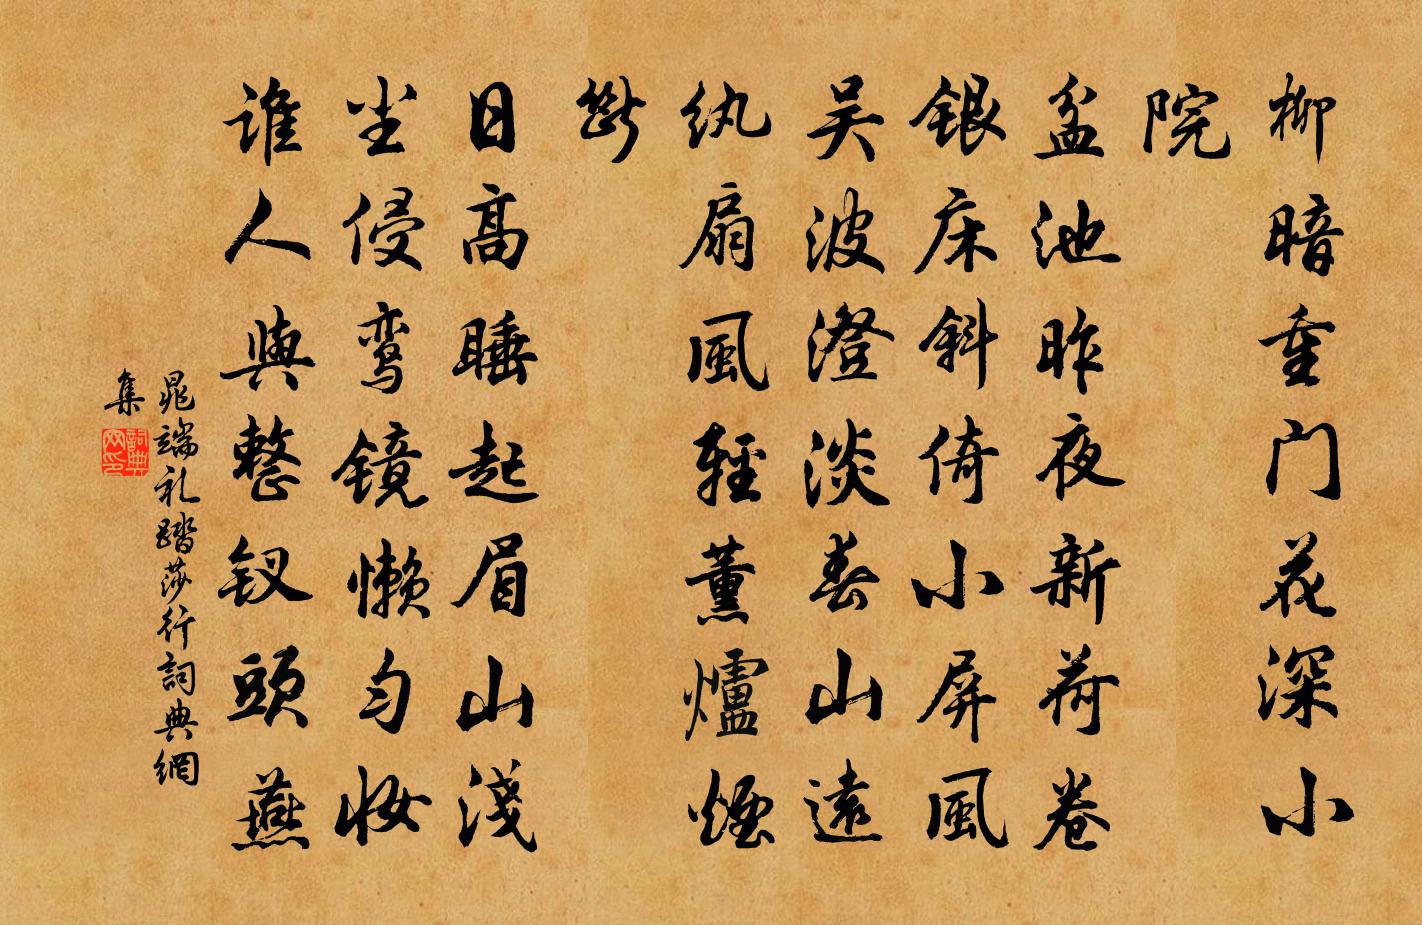 柳暗重门花深小
院
盆池昨夜新荷卷
银床斜倚小屏風
吴波澄淡春山遠
纨扇風輕薰爐煙
斷
日高睡起眉山淺
尘侵鸾镜懒匀妆
谁人與整钗頭燕
晁端礼踏莎行詞典網
集
詞典網印